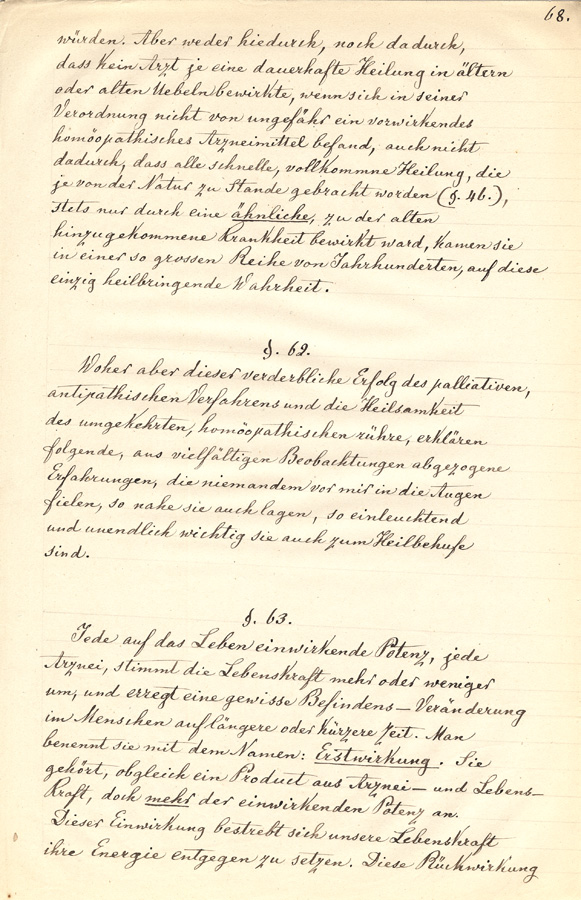 68.
würden. Aber weder hiedurch, noch dadurch,
dass kein Arzt je eine dauerhafte Heilung in ältern
oder alten Uebeln bewirkte, wenn sich in seiner
Verordnung nicht von ungefähr ein vorwirkendes
homöopathisches Arzneimittel befand, auch nicht
dadurch, dass alle schnelle, vollkommne Heilung, die
je von der Natur zu Stande gebracht worden (§. 46.),
stets nur durch eine ähnliche, zu der alten
hinzugekommene Krankheit bewirkt ward, kamen sie
in einer so grossen Reihe von Jahrhunderten, auf diese
einzig heilbringende Wahrheit.
§. 62.
Woher aber dieser verderbliche Erfolg des palliativen,
antipathischen Verfahrens und die Heilsamkeit
des umgekehrten, homöopathischen rühre, erklären
folgende, aus vielfältigen Beobachtungen abgezogene
Erfahrungen, die niemandem vor mir in die Augen
fielen, so nahe sie auch lagen, so einleuchtend
und unendlich wichtig sie auch zum Heilbehufe
sind.
§. 63.
Jede auf das Leben einwirkende Potenz, jede
Arznei, stimmt die Lebenskraft mehr oder weniger
um, und erregt eine gewisse Befindens-Veränderung
im Menschen auf längere oder kürzere Zeit. Man
benennt sie mit dem Namen: Erstwirkung. Sie
gehört, obgleich ein Product aus Arznei- und Lebens-
Kraft, doch mehr der einwirkenden Potenz an.
Dieser Einwirkung bestrebt sich unsere Lebenskraft
ihre Energie entgegen zu setzen. Diese Rückwirkung